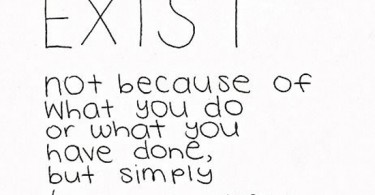 EXIST
not because of
what you do
or what you
have done,
but simply